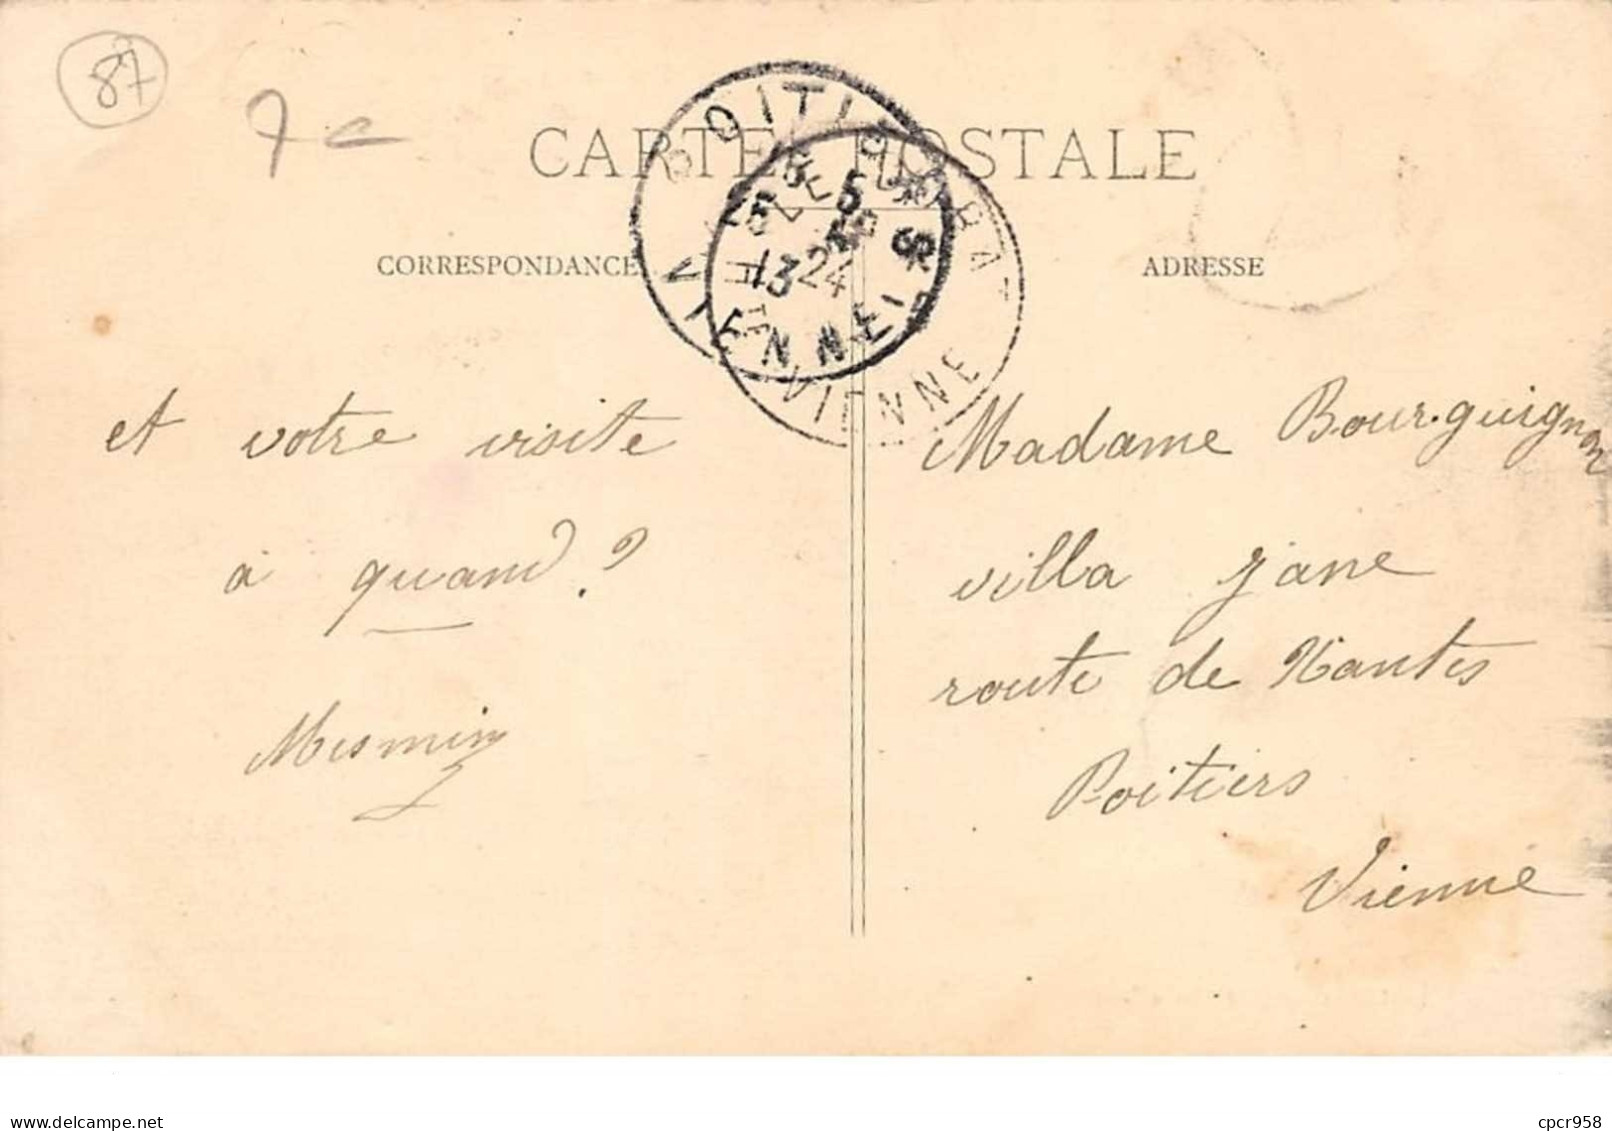 87
CARTE POSTALE
POITIERS
VIENNE
VIENNE
13
24
CORRESPONDANCE
ADRESSE
et votre visite
à quand ?
Mesmin
Madame Bourguignon
villa Jane
route de Nantes
Poitiers
Vienne
delcampe.net
cpcr958